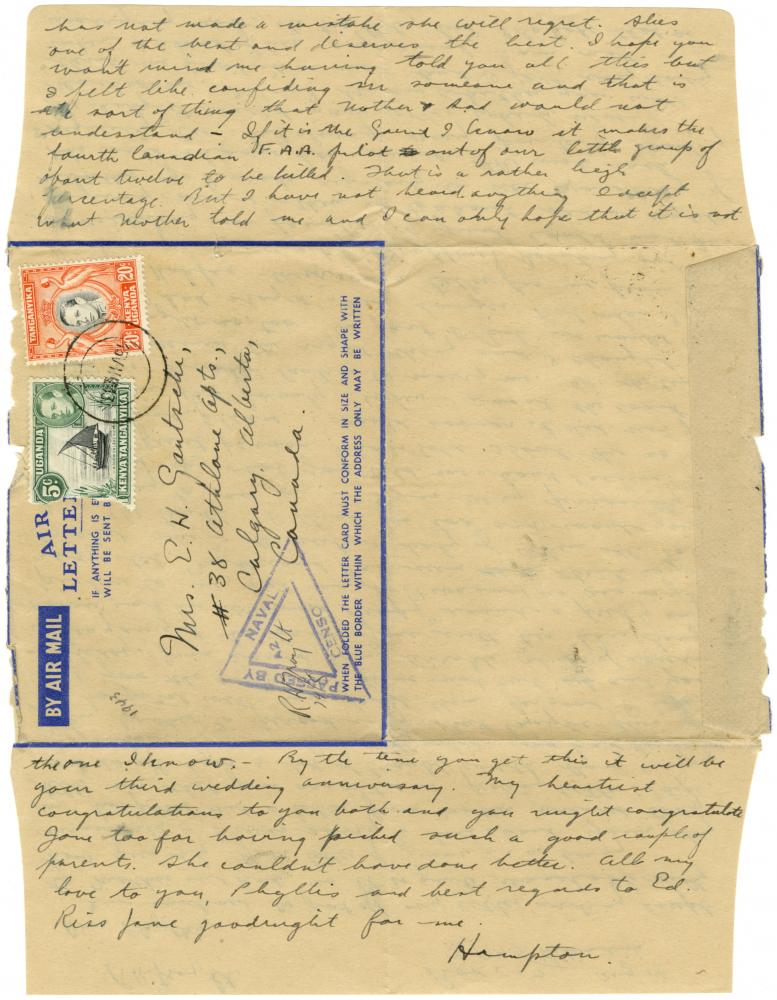 has not made a mistake she will regret. Shes
one of the best and deserves the best. I hope you
won't mind me having told you all this but
I felt like confiding in someone and that is
the sort of thing that Mother & Dad would not
understand – If it is the I know it makes the
fourth Canadian F.A.A. pilot out of our little group of
about twelve to be killed. That is a rather high
percentage. But I have not heard anything except
what Mother told me and I can only hope that it is not
TANGANYIKA
20c
20c
KENYA
UGANDA
UGANDA
5c
KENYA TANGANYIKA
AIR
LETTE
IF ANYTHING IS E
WILL BE SENT B
BY AIR MAIL
1943
Mrs. E. H. Gautschi,
# 38 Athlone Apts.,
Calgary, Alberta,
Canada.
PASSED BY
NAVAL
CENSO
R H Gray Lt
WHEN FOLDED THE LETTER CARD MUST CONFORM IN SIZE AND SHAPE WITH
THE BLUE BORDER WITHIN WHICH THE ADDRESS ONLY MAY BE WRITTEN
the one I know. – By the time you get this it will be
your third wedding anniversary. My heartiest
congratulations to you both and you might congratulate
Jane too for having picked such a good couple of
parents. She couldn't have done better. All my
love to you, Phyllis and best regards to Ed.
Kiss Jane goodnight for me.
Hampton.